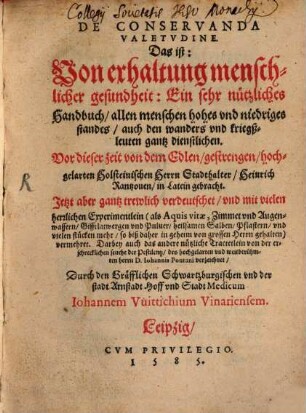 Collegij Societatis Jesu Monachij
DE CONSERVANDA
VALETVDINE.
Das ist:
Von erhaltung mensch-
licher gesundheit: Ein sehr nützliches
Handbuch / allen menschen hohes vnd niedriges
standes / auch den wanders vnd kriegß-
leuten gantz dienstlichen.
Vor dieser zeit von dem Edlen / gestrengen / hoch-
gelarten Holsteinischen Herrn Stadthalter / Heinrich
Rantzouen / in Latein gebracht.
Jetzt aber gantz trewlich verdeutschet / vnd mit vielen
herrlichen Experimentlein (als Aquis vitæ, Zimmet vnd Augen-
wassern / Gifftlatwergen vnd Puluer / heilsamen Salben / Pflastern / vnd
vielen stücken mehr / so biß daher in geheim von grossen Herrn gehalten)
vermehret. Darbey auch das andere nützliche Tractetlein von der er-
schrecklichen seuche der Pestilentz / des hochgelarten vnd
herrn D. Iohannis Pontani verzeichnet /
Durch den Gräfflichen Schwartzburgischen vnd der
stadt Arnstadt Hoff vnd Stadt Medicum
Iohannem VVittichium Vinariensem.
Leipzig /
CVM PRIVILEGIO.
1585.